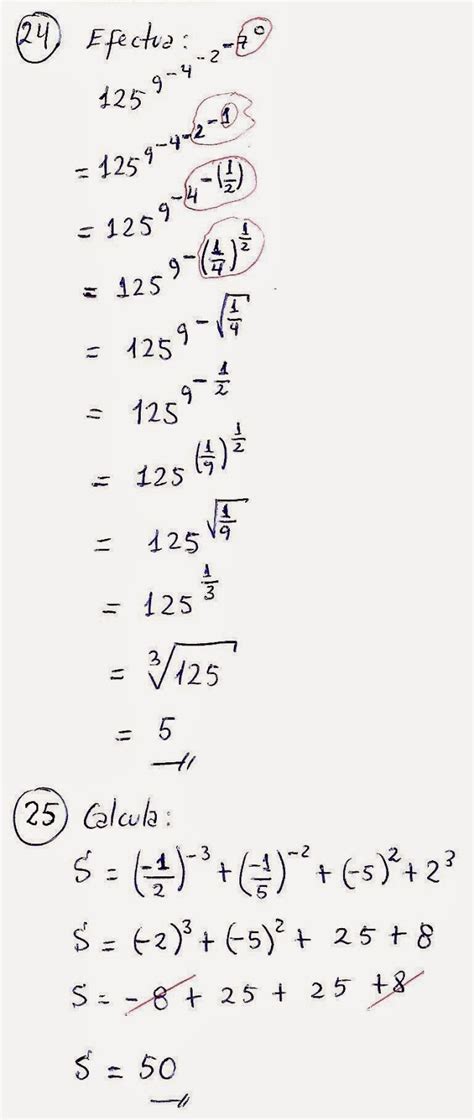 24 Efectua:
125^9^-4^-2^-7^0
= 125^9^-4^-2^-1
= 125^9^-4^-(1/2)
= 125^9^-(1/4)^1/2
= 125^9^-√(1/4)
= 125^9^-1/2
= 125^(1/9)^1/2
= 125^√(1/9)
= 125^1/3
= ∛125
= 5
25 Calcula:
S = (-1/2)^-3 + (-1/5)^-2 + (-5)^2 + 2^3
S = (-2)^3 + (-5)^2 + 25 + 8
S = -8 + 25 + 25 + 8
S = 50